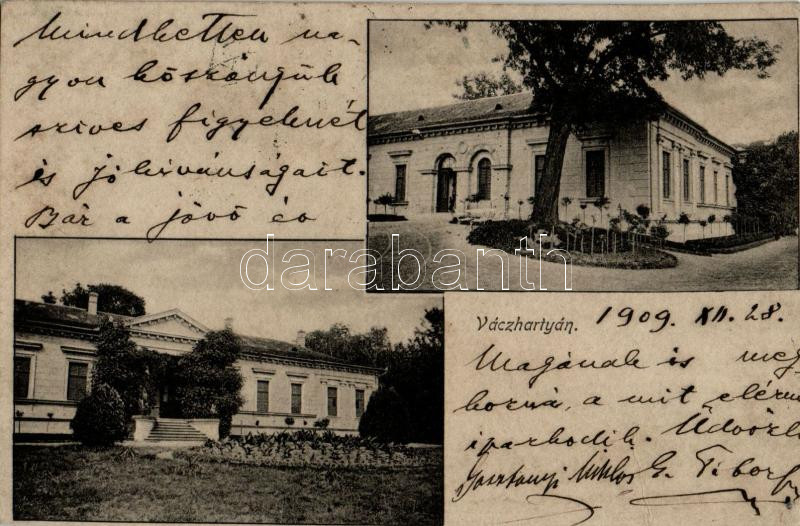 Mindketten na-
gyon köszönjük
szives figyelmét
és jókivánságait.
Bár a jövő év
darabanth
Váczhartyán. 1909. XII. 28.
Magának is meg
hozná, a mit elérni
iparkodik. Üdvözli
Miklos G. Tibor